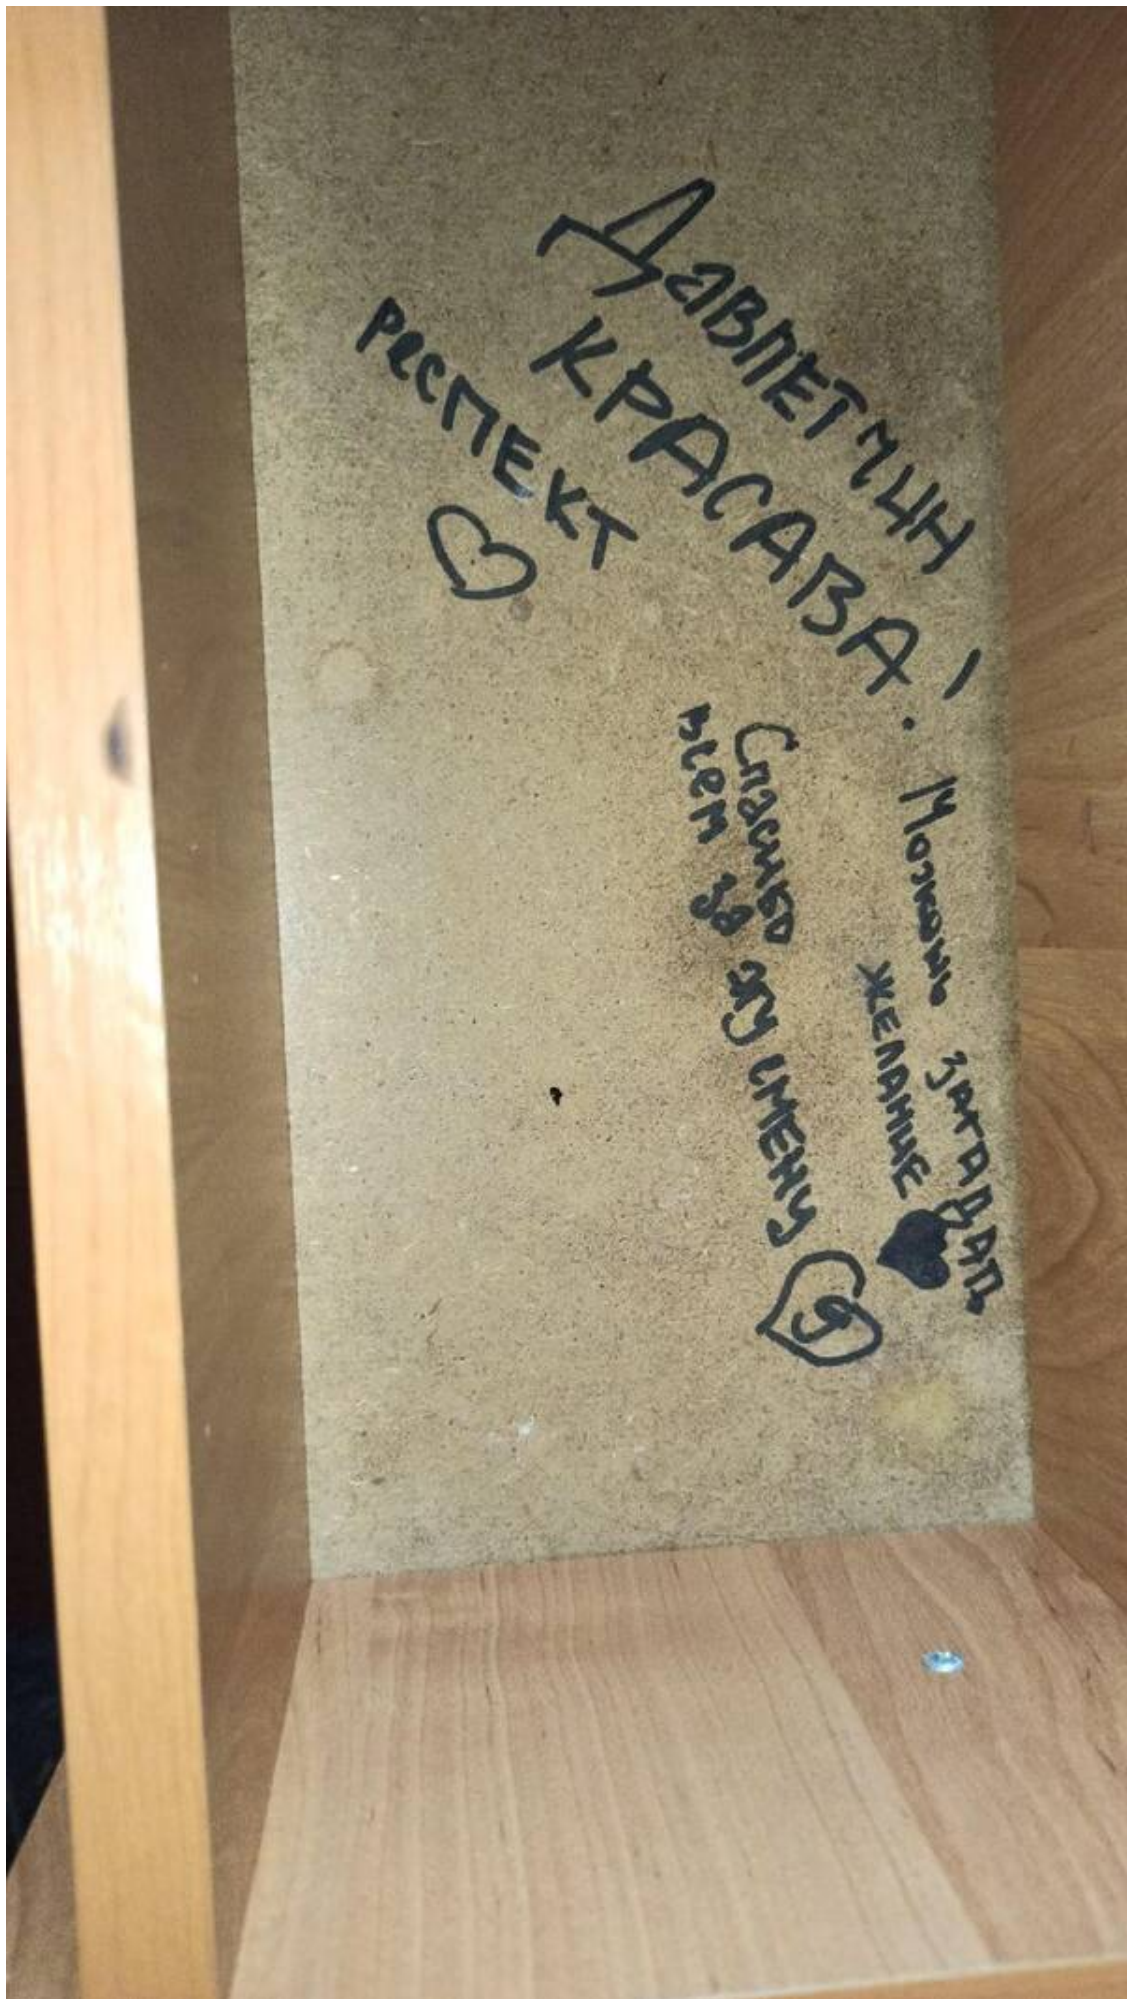 Давлетчин
КРАСАВА!
респект
Можешь загадать
желание
Спасибо
всем за эту смену